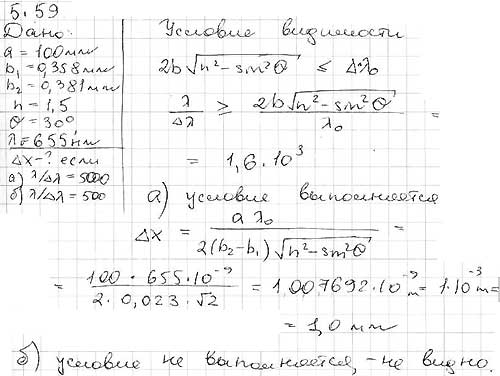 5.59
Дано:
a = 100 мм
b₁ = 0,358 мм
b₂ = 0,381 мм
n = 1,5
θ = 30°
λ = 655 нм
Δx - ? если
а) λ/Δλ = 5000
б) λ/Δλ = 500
Условие видимости
2b√(n² - sin²θ) ≤ Δλ₀
λ/Δλ ≥ 2b√(n² - sin²θ)/λ₀ =
= 1,6·10³
а) условие выполняется
Δx = aλ₀/(2(b₂-b₁)√(n²-sin²θ)) =
= 100·655·10⁻⁹/(2·0,023·√2) = 1,007692·10⁻³ m = 1·10⁻³ m =
= 1,0 мм
б) условие не выполняется, - не видно.